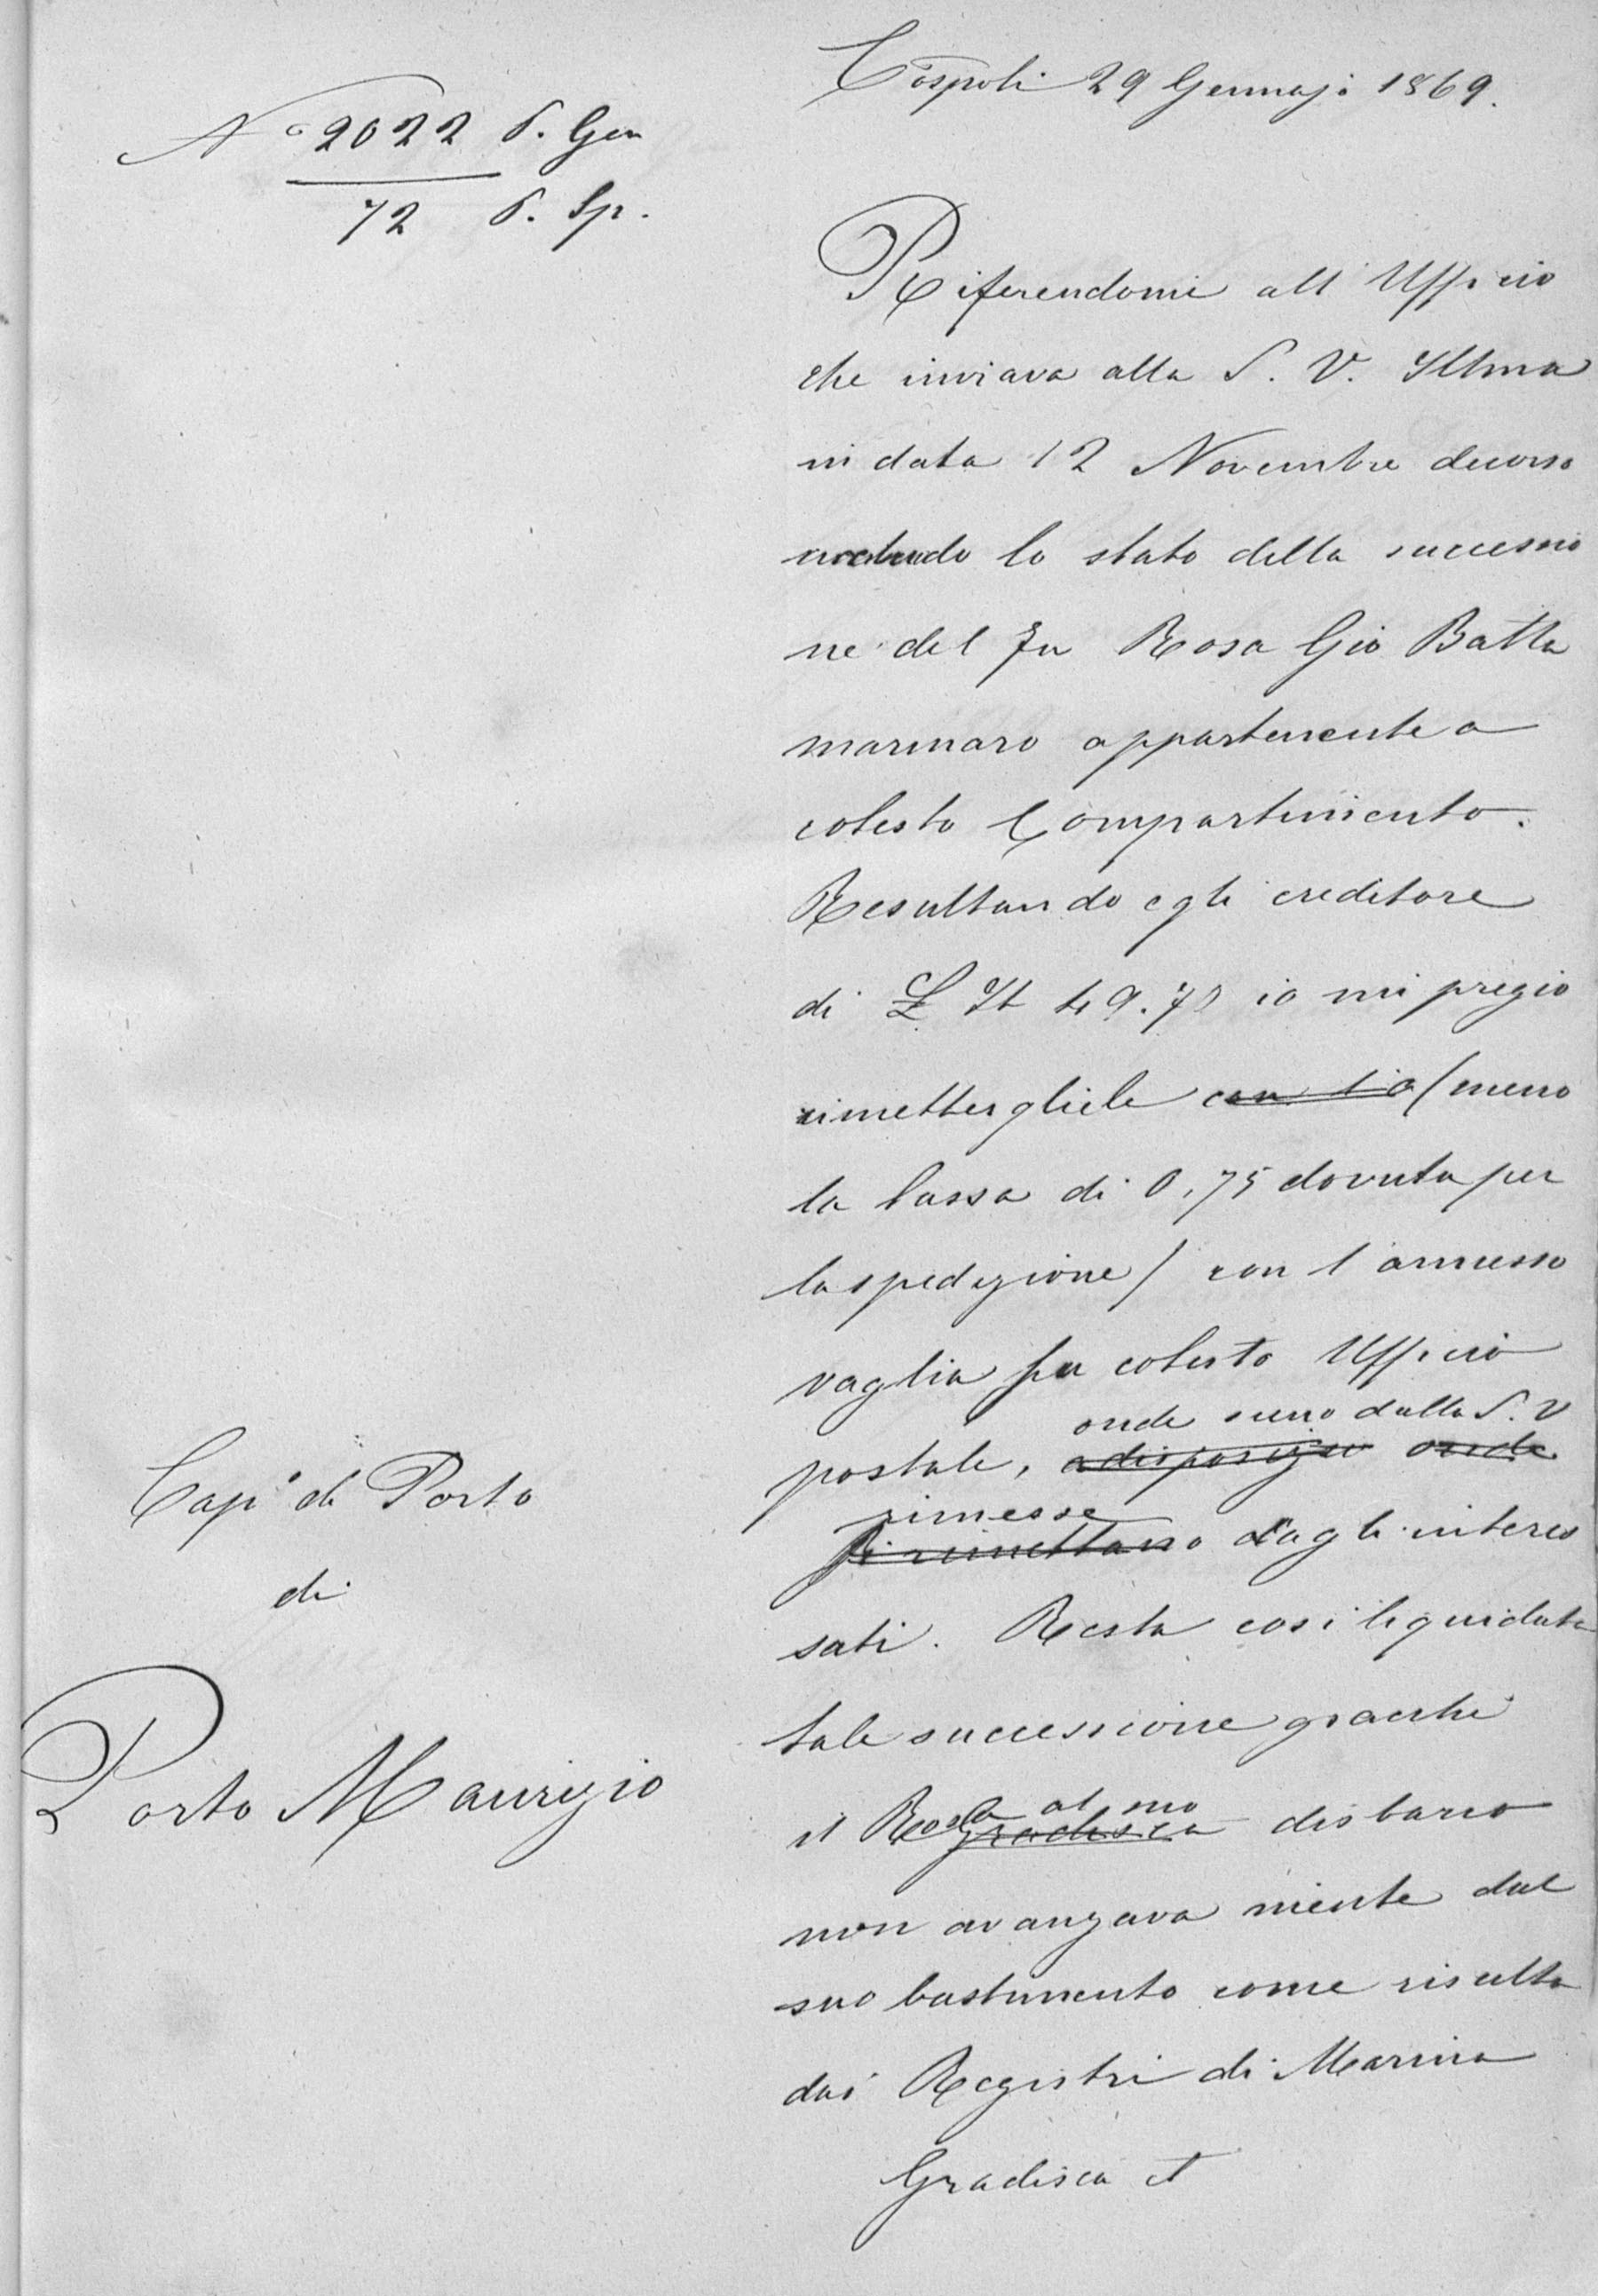 Cospoli 29 Gennajo 1869.
No 2022 P. Gen
72 P. Sp.
Riferendomi all'Ufficio
che inviava alla S. V. Illma
in data 12 Novembre decorso
lo stato della successio
ne del fu Rosa Gio Batta
marinaro appartenente a
cotesto Compartimento.
Resultando egli creditore
di £ It 49.70 io mi pregio
rimettergliele con l'a (meno
la tassa di 0,75 dovuta per
la spedizione) con l'annesso
vaglia su cotesto Ufficio
onde sieno dalla S. V
postale, a disposizio onde
rimesse
si rimettano dagli interes
sati. Resta così liquidata
tale successione giacchè
al suo
il Rosa Gradisca disbarco
non avanzava niente dal
suo bastimento come risulta
dai Registri di Marina
Gradisca et
Capo di Porto
di
Porto Maurizio